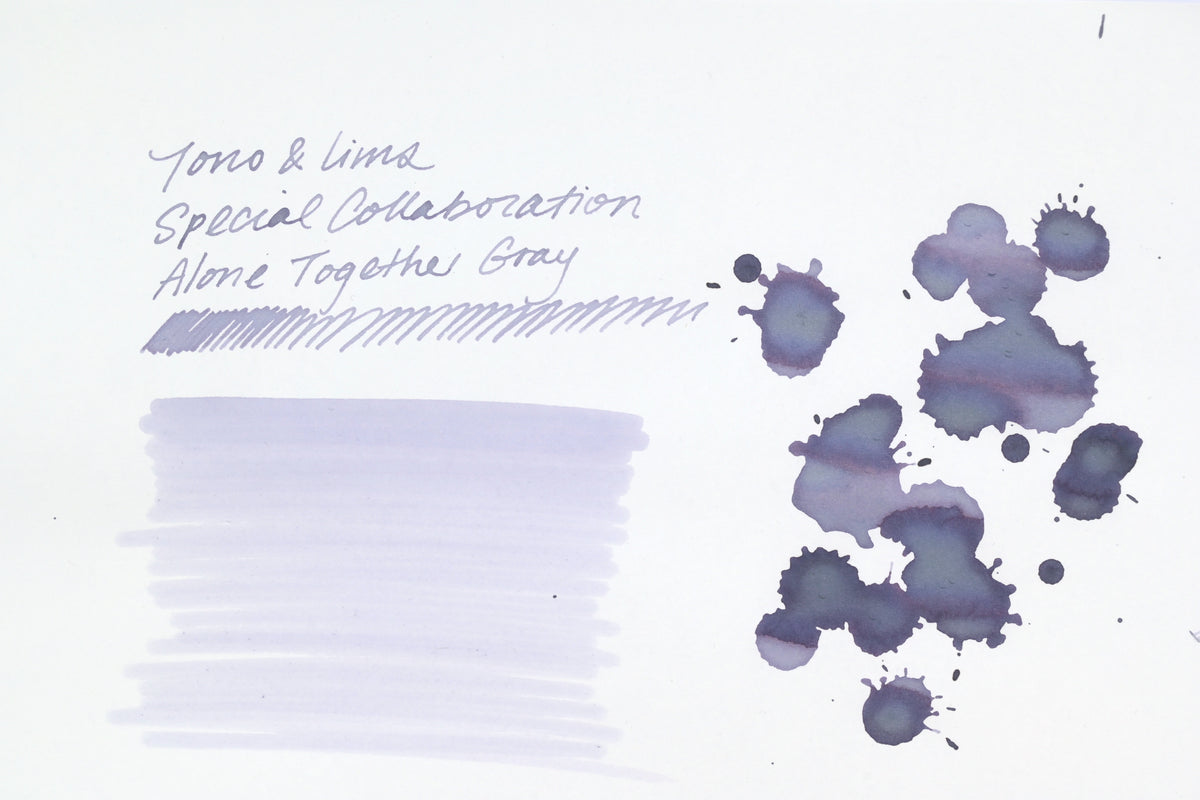 Tono & Lims
Special Collaboration
Alone Together Gray